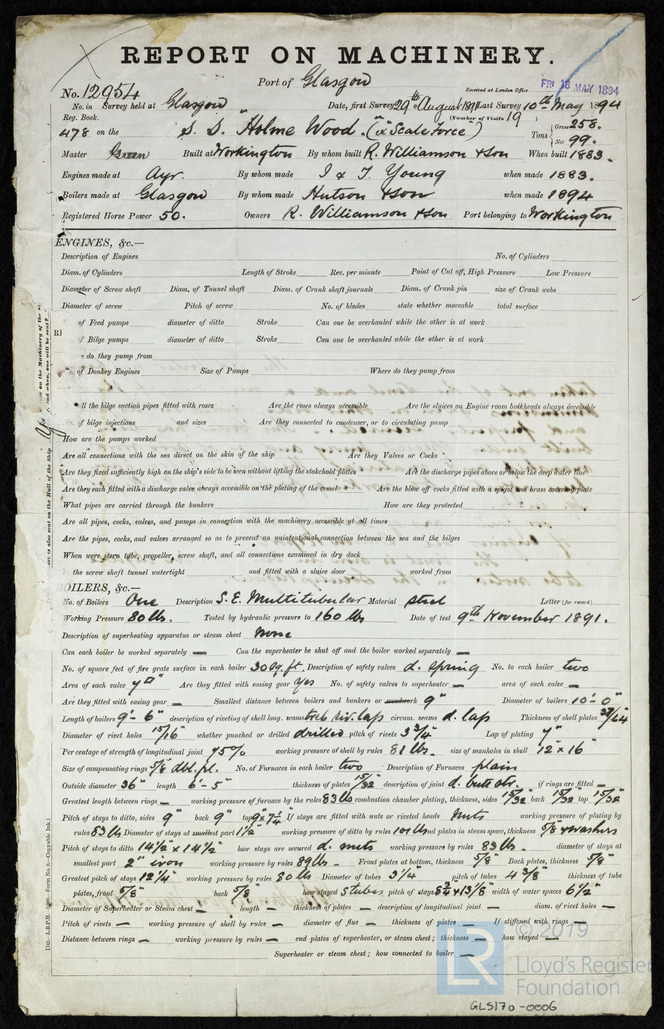 REPORT ON MACHINERY.
No. 12954 Port of Glasgow Received at London Office FRI 18 MAY 1894
No. in Survey held at Glasgow Date, first Survey 29th August 1891 Last Survey 10th May 1894
Reg. Book. (Number of Visits 19)
478 on the S. S. "Holme Wood" (ex Scale Force) Tons Gross 258. Net 99.
Master Green Built at Workington By whom built R. Williamson & Son When built 1883.
Engines made at Ayr. By whom made J & T. Young when made 1883.
Boilers made at Glasgow By whom made Hutson & Son when made 1894
Registered Horse Power 50. Owners R. Williamson & Son Port belonging to Workington
ENGINES, &c.—
Description of Engines No. of Cylinders
Diam. of Cylinders Length of Stroke Rev. per minute Point of Cut off, High Pressure Low Pressure
Diameter of Screw shaft Diam. of Tunnel shaft Diam. of Crank shaft journals Diam. of Crank pin size of Crank webs
Diameter of screw Pitch of screw No. of blades state whether moveable total surface
of Feed pumps diameter of ditto Stroke Can one be overhauled while the other is at work
of Bilge pumps diameter of ditto Stroke Can one be overhauled while the other is at work
do they pump from
of Donkey Engines Size of Pumps Where do they pump from
all the bilge suction pipes fitted with roses Are the roses always accessible Are the sluices on Engine room bulkheads always accessible
of bilge injections and sizes Are they connected to condenser, or to circulating pump
How are the pumps worked
Are all connections with the sea direct on the skin of the ship Are they Valves or Cocks
Are they fixed sufficiently high on the ship's side to be seen without lifting the stokehold plates Are the discharge pipes above or below the deep water line
Are they each fitted with a discharge valve always accessible on the plating of the vessel Are the blow off cocks fitted with a spigot and brass covering plate
What pipes are carried through the bunkers How are they protected
Are all pipes, cocks, valves, and pumps in connection with the machinery accessible at all times
Are the pipes, cocks, and valves arranged so as to prevent an unintentional connection between the sea and the bilges
When were stern tube, propeller, screw shaft, and all connections examined in dry dock
the screw shaft tunnel watertight and fitted with a sluice door worked from
BOILERS, &c.—
No. of Boilers One Description S. E. Multitubular Material steel Letter (for record)
Working Pressure 80 lbs. Tested by hydraulic pressure to 160 lbs Date of test 9th November 1891.
Description of superheating apparatus or steam chest None
Can each boiler be worked separately — Can the superheater be shut off and the boiler worked separately —
No. of square feet of fire grate surface in each boiler 30 sq. ft. Description of safety valves d. spring No. to each boiler two
Area of each valve 7□" Are they fitted with easing gear Yes No. of safety valves to superheater — area of each valve —
Are they fitted with easing gear — Smallest distance between boilers and bunkers or woodwork 9" Diameter of boilers 10'-0"
Length of boilers 9'-6" description of riveting of shell long. seams treb riv. laps circum. seams d. lap Thickness of shell plates
Diameter of rivet holes 15/16" whether punched or drilled drilled pitch of rivets 3 3/4" Lap of plating 7"
Per centage of strength of longitudinal joint 75% working pressure of shell by rules 81 lbs. size of manholes in shell 12 x 16"
Size of compensating rings 5/8 dbl. pl. No. of Furnaces in each boiler two Description of Furnaces plain
Outside diameter 36" length 6'-5" thickness of plates 15/32 description of joint d. butt str. if rings are fitted —
Greatest length between rings — working pressure of furnace by the rules 83 lbs combustion chamber plating, thickness, sides 15/32" back 15/32" top 15/32"
Pitch of stays to ditto, sides 9" back 9" top 9"x7 1/4" If stays are fitted with nuts or riveted heads Nuts working pressure of plating by
rules 83 lbs Diameter of stays at smallest part 1 1/2" working pressure of ditto by rules 101 lbs end plates in steam space, thickness 5/8 + washers
Pitch of stays to ditto 14 1/2 x 14 1/2" how stays are secured d. nuts working pressure by rules 83 lbs. diameter of stays at
smallest part 2" iron working pressure by rules 89 lbs. Front plates at bottom, thickness 5/8" Back plates, thickness 5/8"
Greatest pitch of stays 12 1/4" working pressure by rules 80 lbs Diameter of tubes 3 1/4 pitch of tubes 4 3/8" thickness of tube
plates, front 5/8" back 5/8" how stayed stubes pitch of stays width of water spaces 6 1/2"
Diameter of Superheater or Steam chest — length — thickness of plates — description of longitudinal joint — diam. of rivet holes —
Pitch of rivets — working pressure of shell by rules — diameter of flue — thickness of plates — If stiffened with rings —
Distance between rings — working pressure by rules — end plates of superheater, or steam chest; thickness — how stayed —
Superheater or steam chest; how connected to boiler —
© 2019
LR Lloyd's Register
Foundation
GLS170-0006